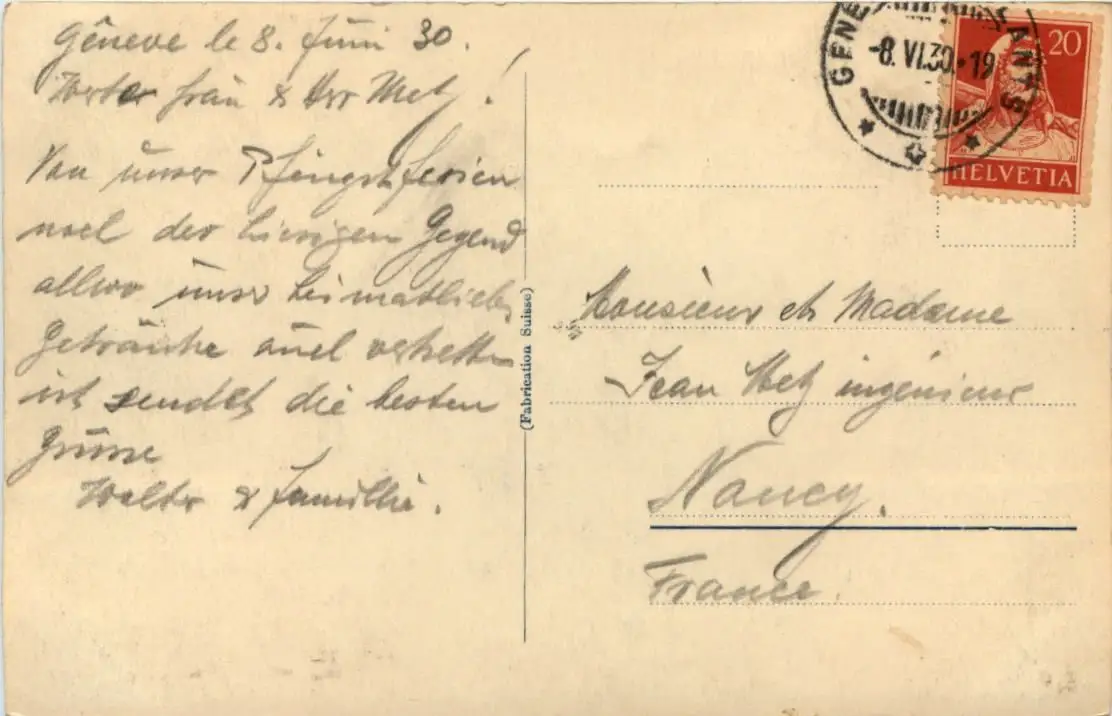 Genève le 8. Juni 30.
Werte Frau & Herr Metz!
Von unser Pfingstferien
noch der hiesigen Gegend
allwo unser heimatliches
Getränke auch vertretten
ist sendet die besten
Grüsse
Walter & Famillie.
(Fabrication Suisse)
GENÈVE
-8.VI.30.-19
ANTS
20
HELVETIA
Monsieur et Madame
Jean Metz ingénieur
Nancy.
France